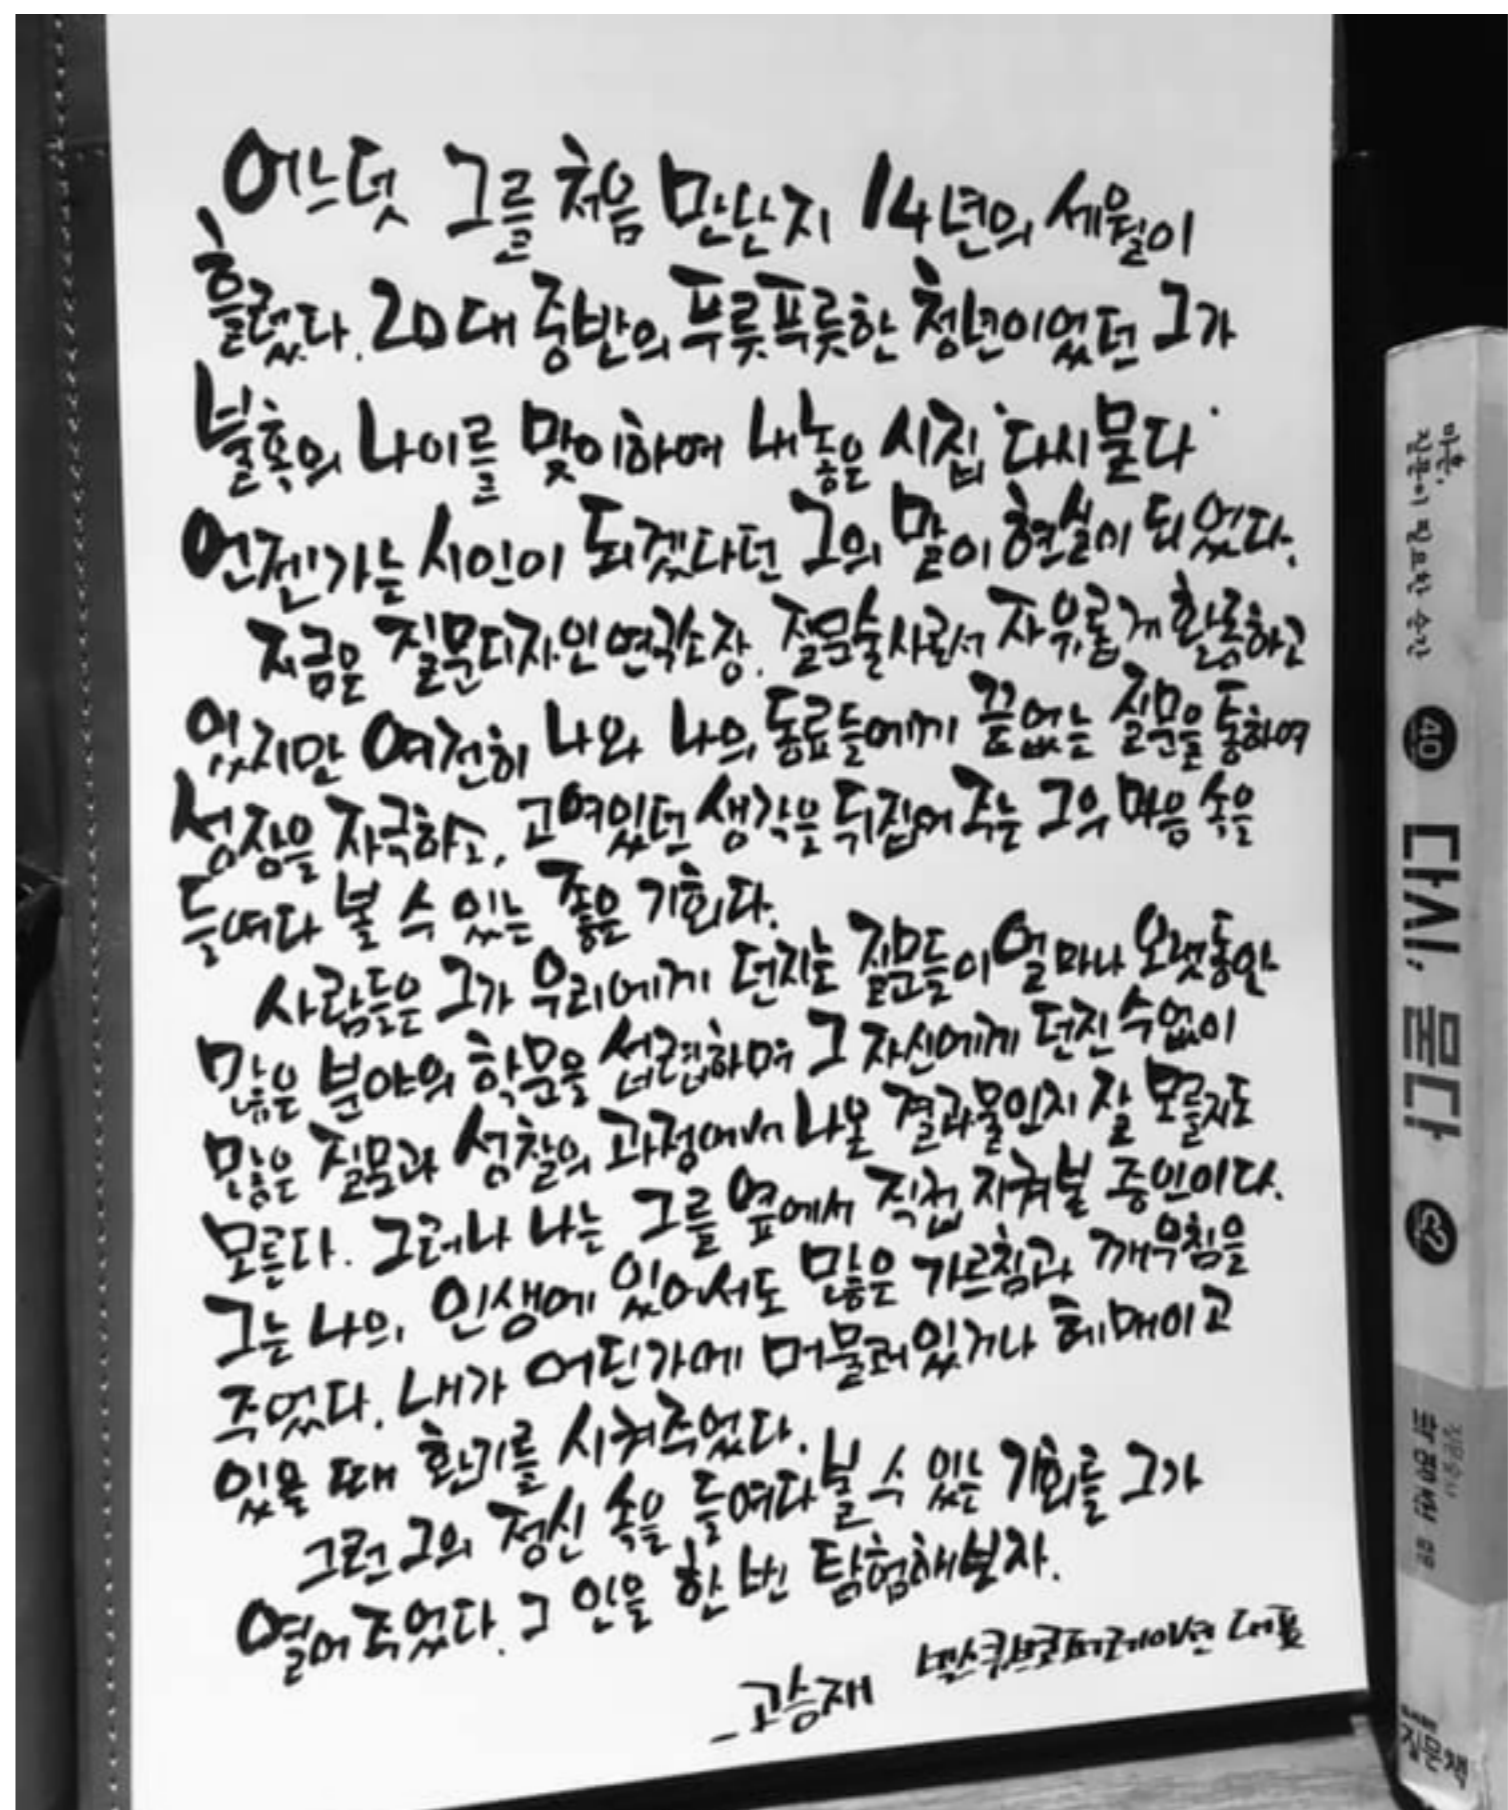 어느덧 그를 처음 만난지 14년의 세월이
흘렀다. 20대 중반의 푸릇푸릇한 청년이었던 그가
불혹의 나이를 맞이하여 내놓은 시집 '다시 묻다'
언젠가는 시인이 되겠다던 그의 말이 현실이 되었다.
지금은 질문디자인연구소장. 질문술사로서 자유롭게 활동하고
있지만 여전히 나와 나의 동료들에게 끝없는 질문을 통하여
성장을 자극하고, 고여있던 생각을 뒤집어 주는 그의 마음 속을
들여다 볼 수 있는 좋은 기회다.
사람들은 그가 우리에게 던지는 질문들이 얼마나 오랫동안
많은 분야의 학문을 섭렵하며 그 자신에게 던진 수없이
많은 질문과 성찰의 과정에서 나온 결과물인지 잘 모를지도
모른다. 그러나 나는 그를 옆에서 직접 지켜본 증인이다.
그는 나의 인생에 있어서도 많은 가르침과 깨우침을
주었다. 내가 어딘가에 머물러있거나 헤매이고
있을 때 환기를 시켜주었다.
그런 그의 정신 속을 들여다 볼 수 있는 기회를 그가
열어 주었다. 그 안을 한 번 탐험해보자.
_고승재 넥스큐브코퍼레이션 대표
마흔,
질문이 필요한 순간
40
다시, 묻다
질문술사
박영준
질문책